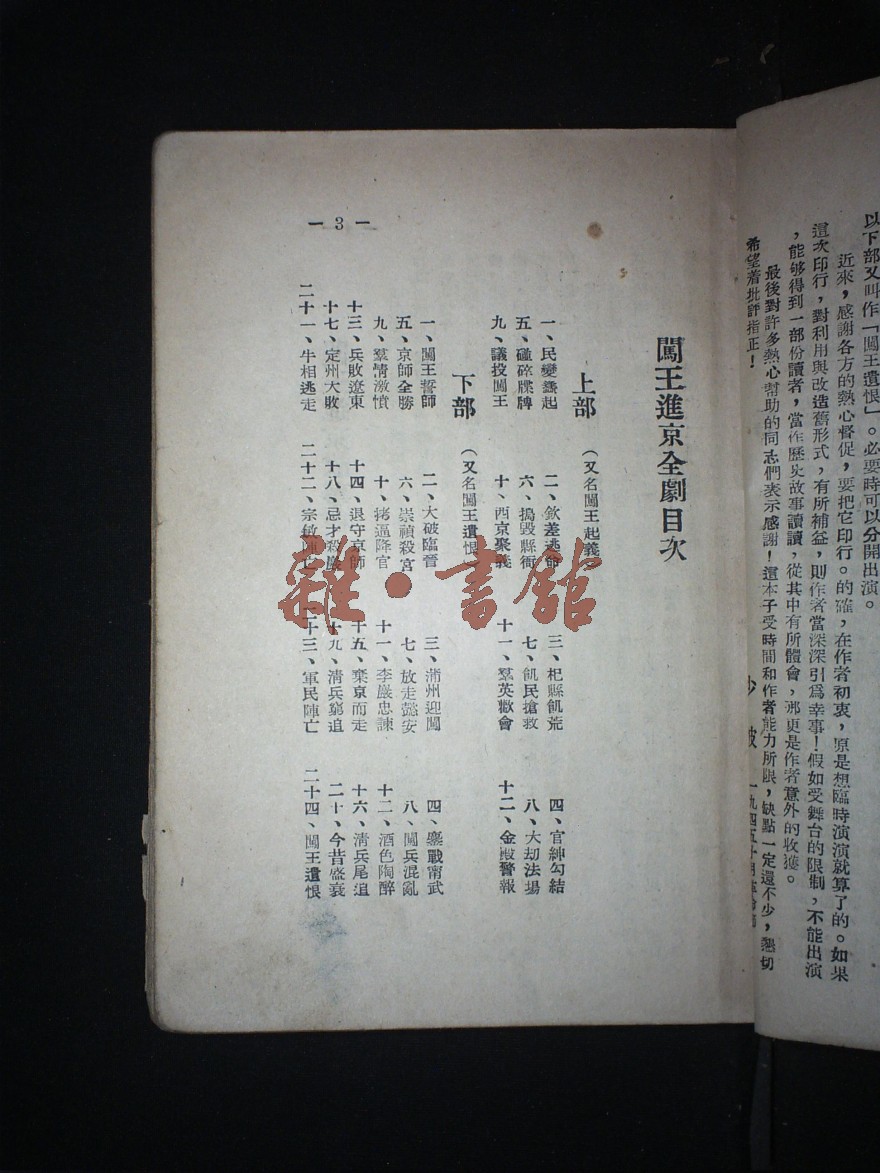 以下部又叫作「闖王遺恨」。必要時可以分開出演。
近來，感謝各方的熱心督促，要把它印行。的確，在作者初衷，原是想臨時演演就算了的。如果
這次印行，對利用與改造舊形式，有所補益，則作者當深深引爲幸事！假如受舞台的限制，不能出演
，能够得到一部份讀者，當作歷史故事讀讀，從其中有所體會，那更是作者意外的收獲。
最後對許多熱心幫助的同志們表示感謝！這本子受時間和作者能力所限，缺點一定還不少，懇切
希望着批評指正！
少波 一九四五十月
闖王進京全劇目次
上部 （又名闖王起義）
一、民變蠭起 二、欽差逃命 三、杞縣飢荒 四、官紳勾結
五、碰碎牒牌 六、搗毀縣衙 七、飢民搶救 八、大刧法場
九、議投闖王 十、西京聚義 十一、羣英歡會 十二、金殿警報
下部 （又名闖王遺恨）
一、闖王誓師 二、大破臨晉 三、蒲州迎闖 四、鏖戰甯武
五、京師全勝 六、崇禎殺宮 七、放走懿安 八、闖兵混亂
九、羣情激憤 十、拷逼降官 十一、李巖忠諫 十二、酒色陶醉
十三、兵敗遼東 十四、退守京師 十五、棄京而走 十六、清兵尾追
十七、定州大敗 十八、忌才殺巖 十九、清兵窮追 二十、今昔盛衰
二十一、牛相逃走 二十二、宗敏陣亡 二十三、軍民陣亡 二十四、闖王遺恨
— 3 —
雜·書館